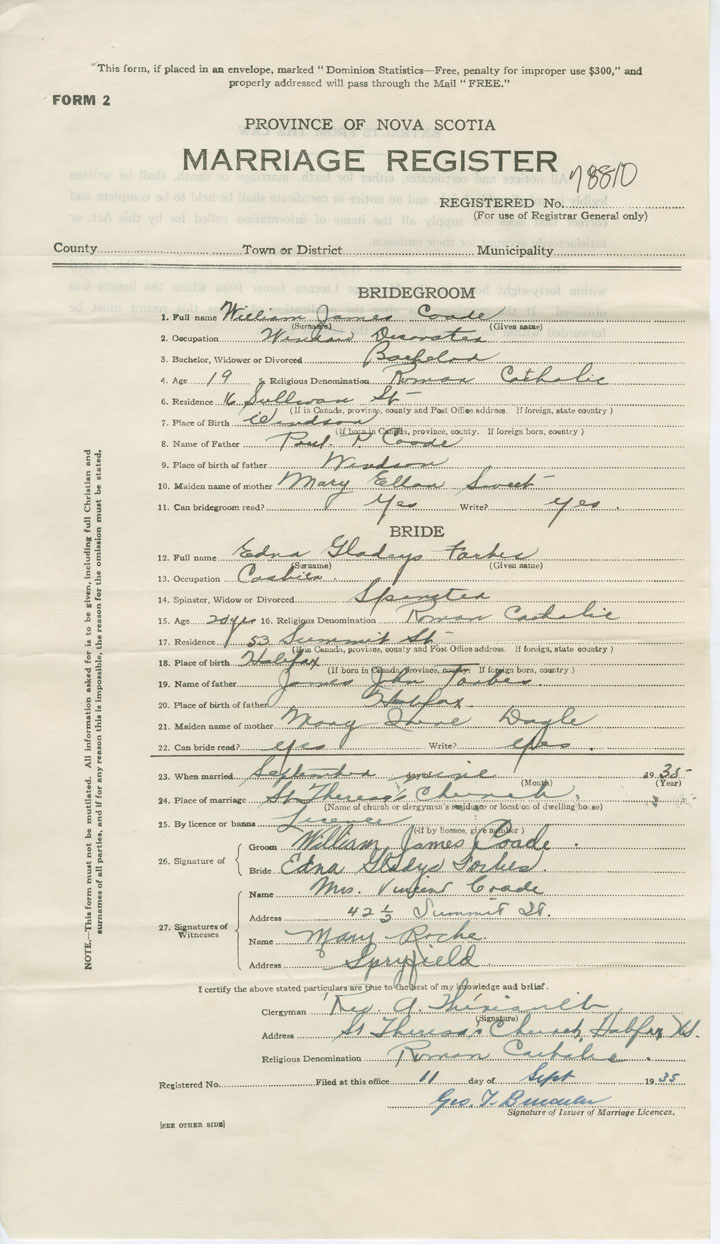 "This form, if placed in an envelope, marked "Dominion Statistics—Free, penalty for improper use $300," and
properly addressed will pass through the Mail "FREE."
FORM 2
PROVINCE OF NOVA SCOTIA
MARRIAGE REGISTER
78810
REGISTERED No.
(For use of Registrar General only)
County Town or District Municipality
BRIDEGROOM
1. Full name William James Coade
(Surname) (Given name)
2. Occupation Window Decorator
3. Bachelor, Widower or Divorced Bachelor
4. Age 19 5. Religious Denomination Roman Catholic
6. Residence 16 Sullivan St
(If in Canada, province, county and Post Office address. If foreign, state country)
7. Place of Birth Windsor
(If born in Canada, province, county. If foreign born, country)
8. Name of Father Paul P Coade
9. Place of birth of father Windsor
10. Maiden name of mother Mary Ellen Sweet
11. Can bridegroom read? Yes Write? Yes.
BRIDE
12. Full name Edna Gladys Forbes
(Surname) (Given name)
13. Occupation Cashier.
14. Spinster, Widow or Divorced Spinster
15. Age 20 yrs 16. Religious Denomination Roman Catholic
17. Residence 53 Summit St
(If in Canada, province, county and Post Office address. If foreign, state country)
18. Place of birth Halifax
(If born in Canada, province, county. If foreign born, country)
19. Name of father James John Forbes.
20. Place of birth of father Halifax.
21. Maiden name of mother Mary Dayle
22. Can bride read? Yes Write? Yes.
23. When married September day of nine 1935
(Month) (Year)
24. Place of marriage St Theresa's Church.
(Name of church or clergyman's residence or location of dwelling house)
25. By licence or banns Licence
(If by licence, give number)
26. Signature of
Groom William James Coade.
Bride Edna Gladys Forbes.
27. Signatures of Witnesses
Name Mrs. Vincent Coade
Address 42½ Summit St.
Name Mary Roche
Address Spryfield
I certify the above stated particulars are true to the best of my knowledge and belief.
Clergyman Rev. A. Thériault
(Signature)
Address St Theresa's Church, Halifax N.S.
Religious Denomination Roman Catholic.
Registered No. Filed at this office 11 day of Sept 1935
Geo. F.
Signature of Issuer of Marriage Licences.
[SEE OTHER SIDE]
NOTE.—This form must not be mutilated. All information asked for is to be given, including full Christian and
surnames of all parties, and if for any reason this is impossible, the reason for the omission must be stated.